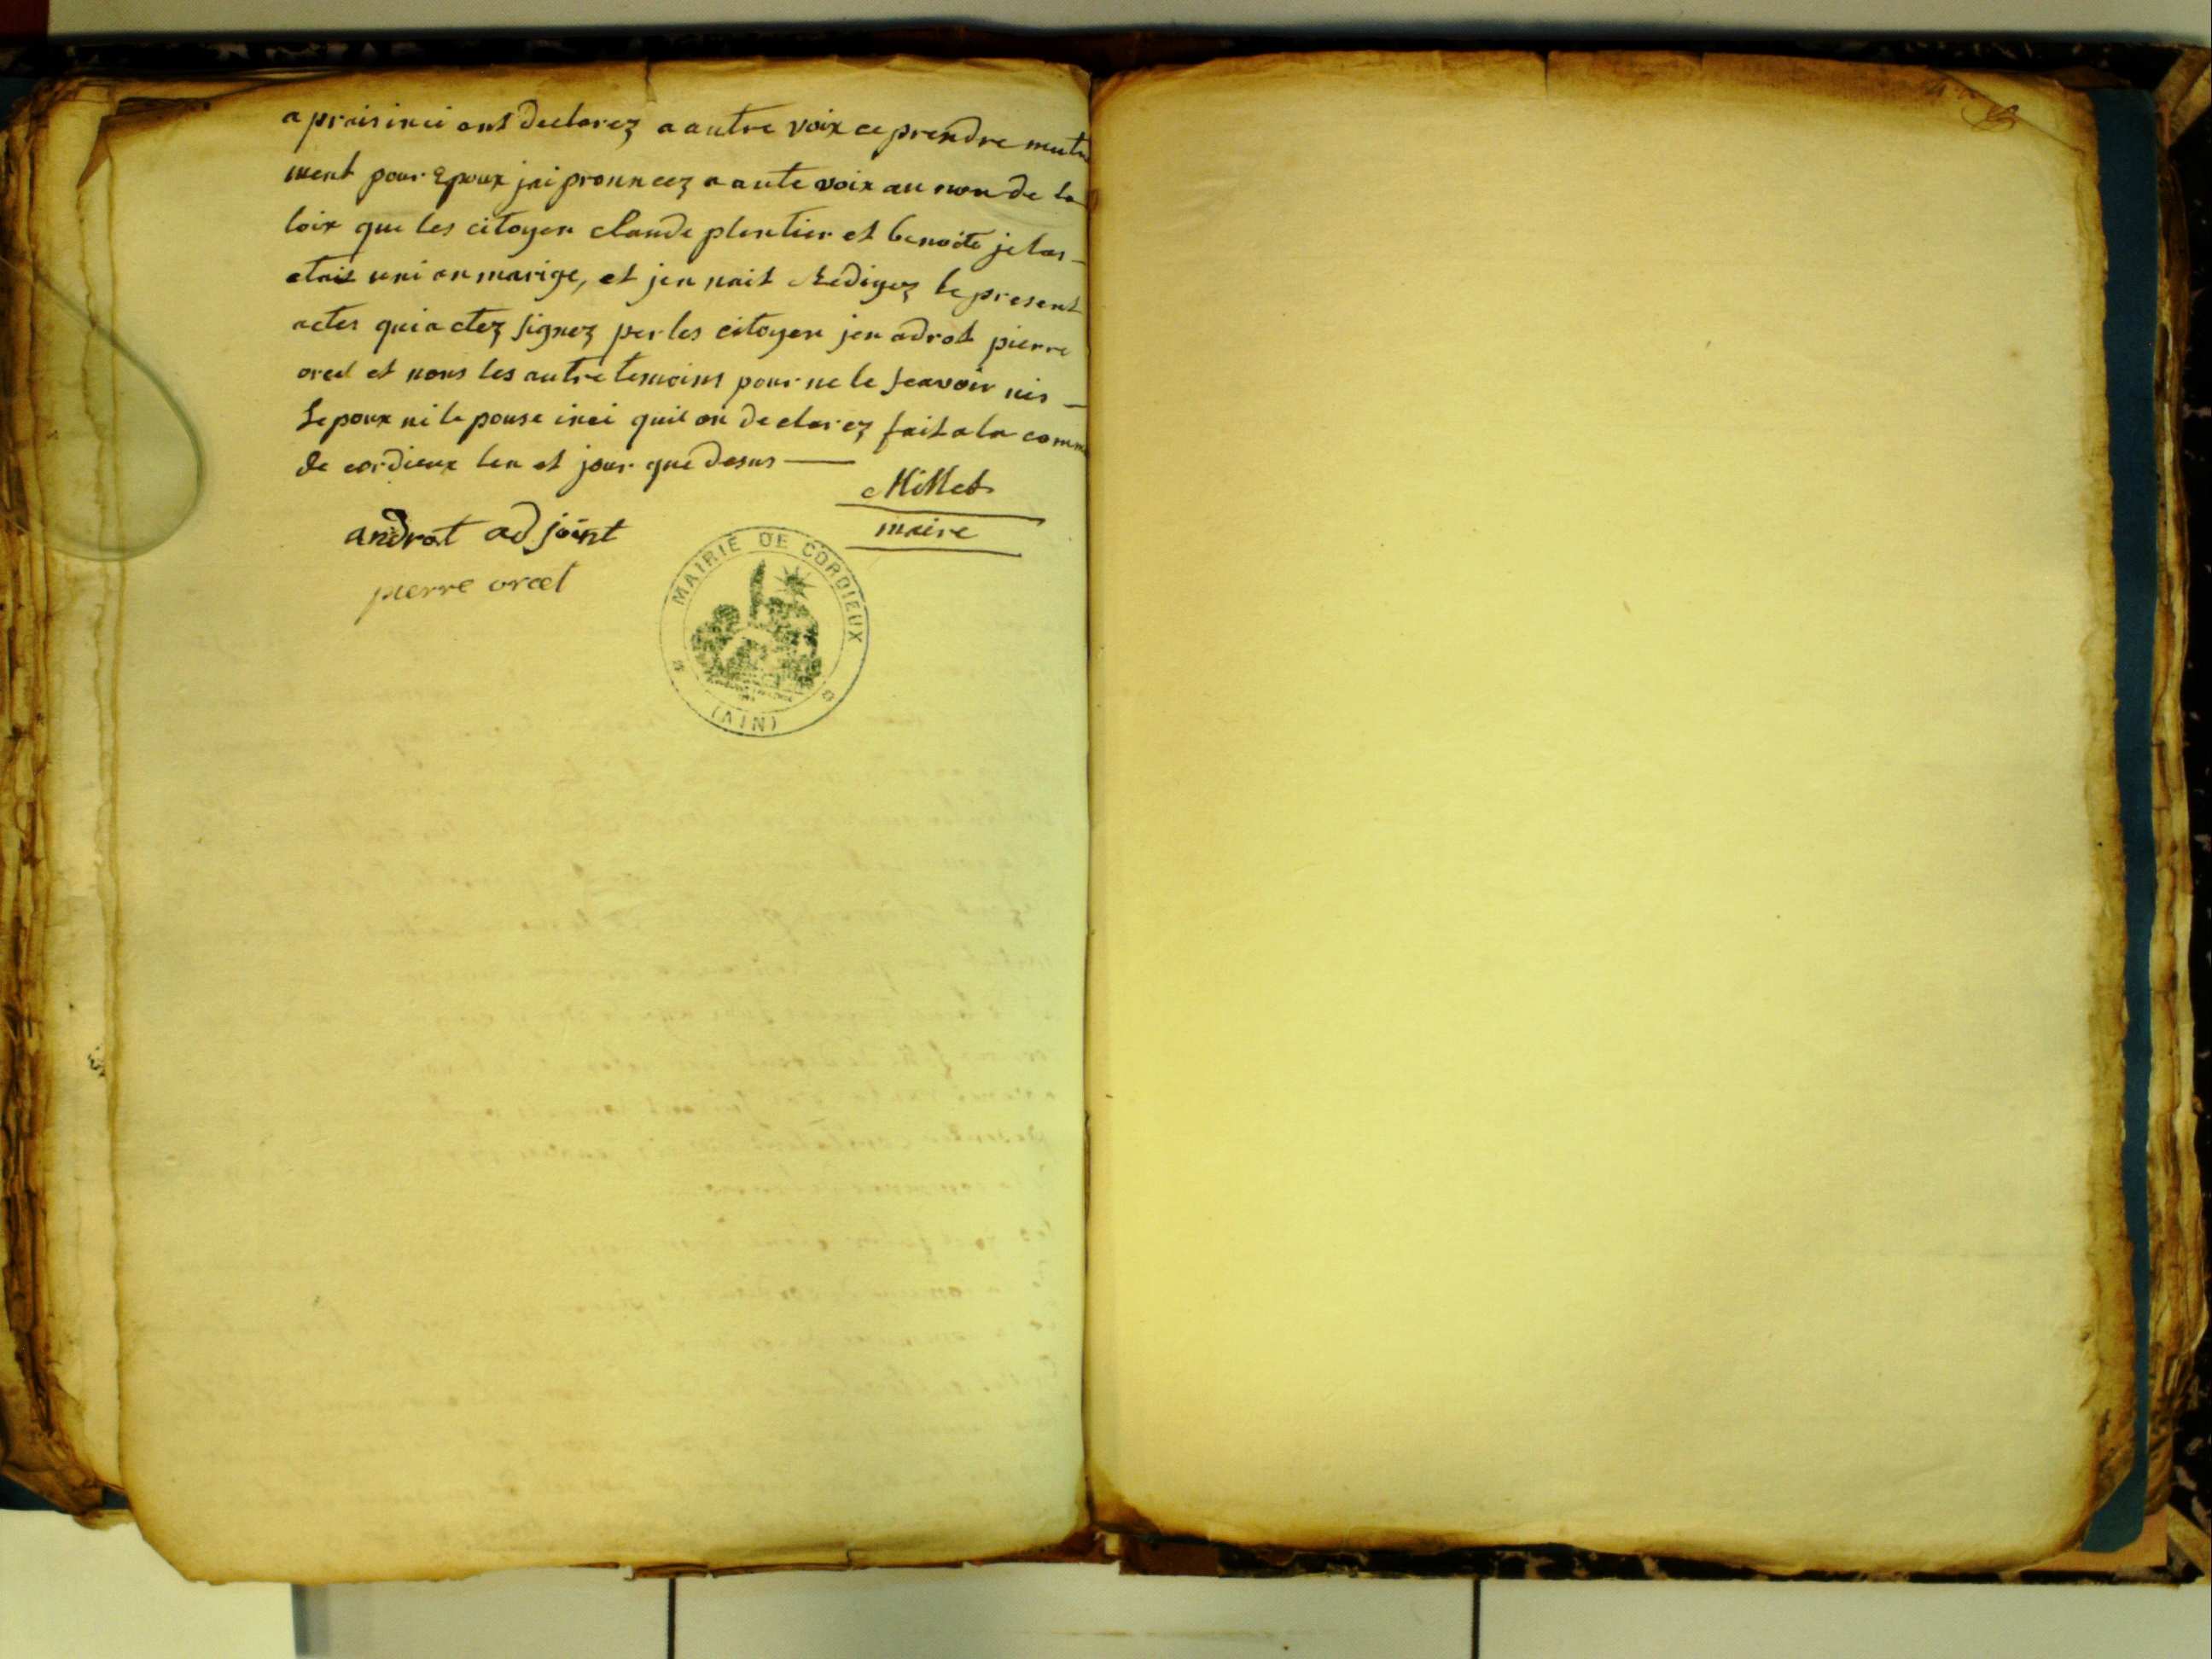 a praisinci ont declarez a autre voix ce prendre mutu
ment pour Epoux jai pronncez a aute voix au nom de la
loix que les citoyen claude plentier et benoite jelas
etais uni en marige, et jen nait Redigez le present
actes qui a etez signez per les citoyen jen adrot pierre
orcel et nous les autre temoins pour ne le seavoir nis
Lepoux ni lepouse inci quil on declarez fait a la comm
de cordieux len et jour que desus
Millet
maire
androt adjoint
pierre orcel
MAIRIE DE CORDIEUX
(AIN)